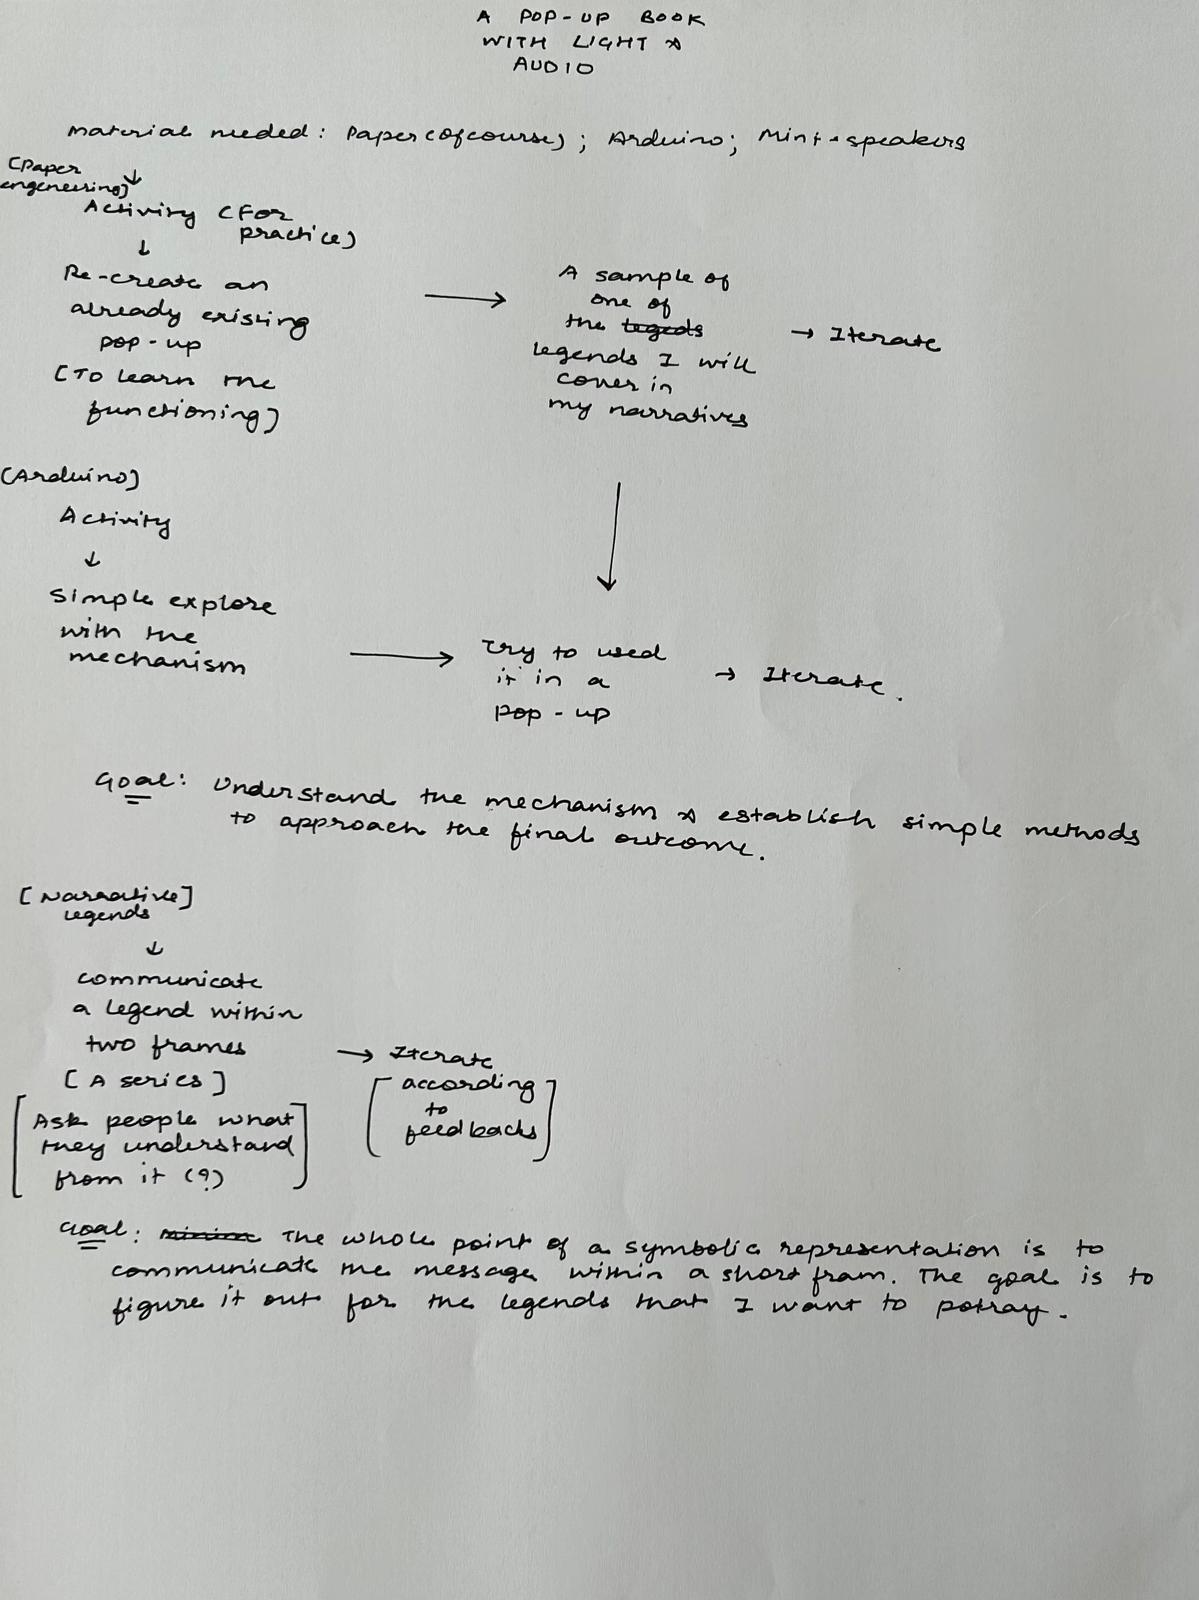 A POP-UP BOOK
WITH LIGHT &
AUDIO
Material needed: Paper (ofcourse); Arduino; Mini-speakers
[Paper
engeneering]
Activity (For
practice)
↓
Re-create an
already existing
pop-up
[To learn the
functioning]
→
A sample of
one of
the legeds
legends I will
cover in
my narratives
→ Iterate
[Arduino]
Activity
↓
Simple explore
with the
mechanism
→
Try to used
it in a
pop-up
→ Iterate.
Goal: Understand the mechanism & establish simple methods
to approach the final outcome.
[Narrative]
legends
↓
communicate
a legend within
two frames
[A series]
[Ask people what
they understand
from it (?)]
→ Iterate
[according
to
feedbacks]
Goal: The whole point of a symbolic representation is to
communicate the message within a short fram. The goal is to
figure it out for the legends that I want to potray.